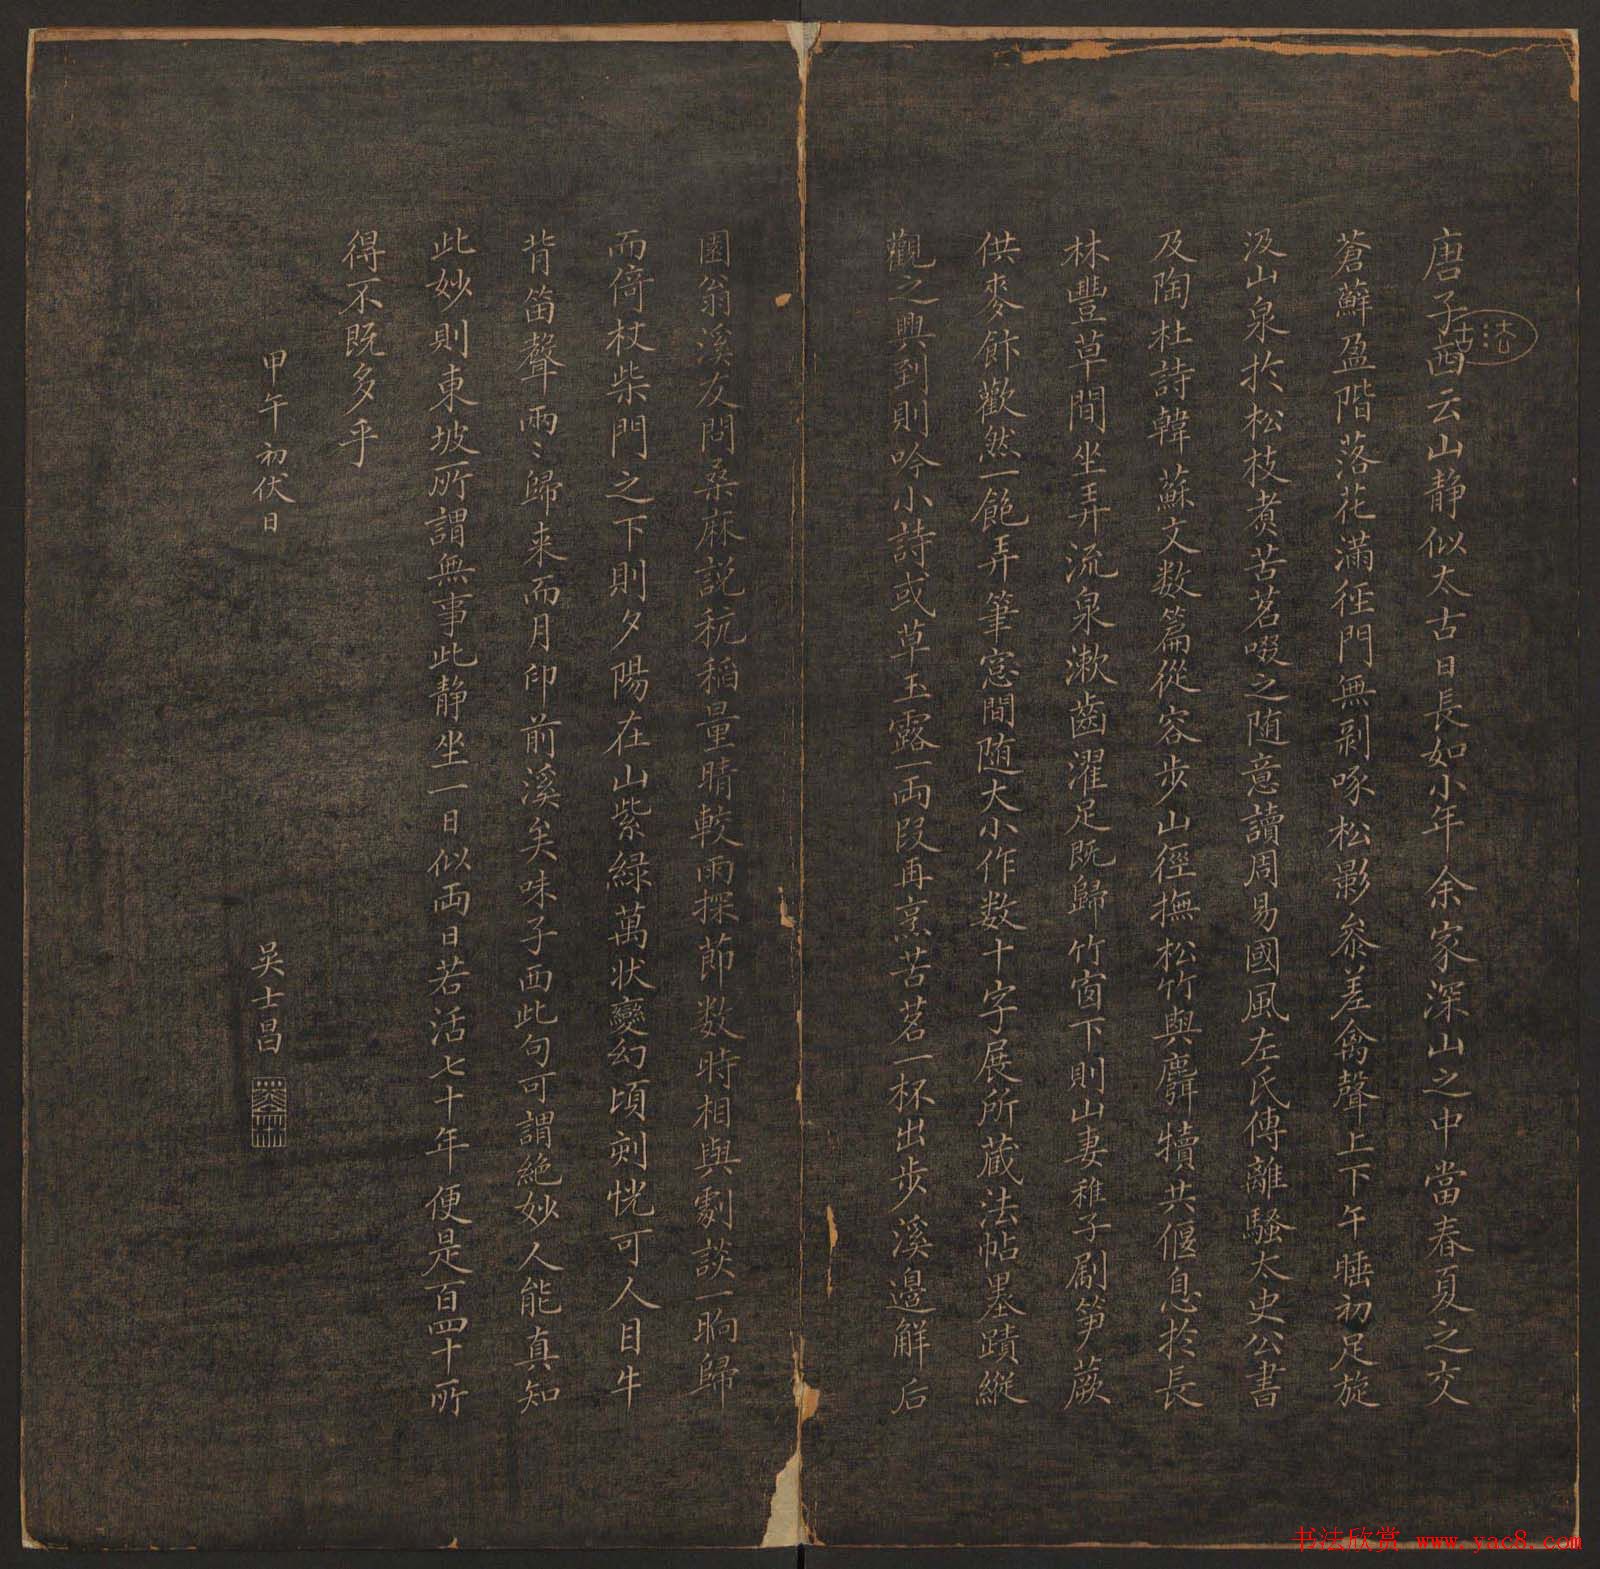 唐子西云山静似太古日長如小年余家深山之中當春夏之交
蒼蘚盈階落花滿徑門無剥啄松影叅差禽聲上下午睡初足旋
汲山泉扵松枝煑苦茗啜之随意讀周易國風左氏傳離騷太史公書
及陶杜詩韓蘇文数篇從容步山徑撫松竹與麛犢共偃息扵長
林豐草間坐弄流泉漱齒濯足既歸竹窗下則山妻稚子刷笋蕨
供麥飰歡然一飽弄筆窓間随大小作数十字展所蔵法帖墨蹟縱
觀之興到則吟小詩或草玉露一両段再烹苦茗一杯出步溪邊解后
園翁溪友問桑麻説秔稻量晴較雨探節数時相與劇談一晌歸
而倚杖柴門之下則夕陽在山紫緑萬状變幻頃刻恍可人目牛
背笛聲兩〻歸来而月印前溪矣味子西此句可謂絶妙人能真知
此妙則東坡所謂無事此静坐一日似両日若活七十年便是百四十所
得不既多乎
甲午初伏日 吳士昌
书法欣赏 www.yac8.com